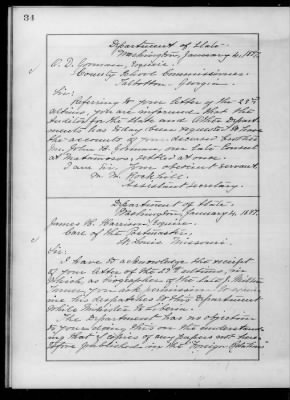 34
Department of State.
Washington, January 4, 1897.
Esquire
County School Commissioner,
Talbotton, Georgia.
Sir:
Referring to your letter of the 23rd
ultimo, you are informed that the
Auditor for the State and Other Depart-
ments has today been requested to have
the account of your deceased brother
Mr. John H. late Consul
at Matamoros, settled at once.
I am Sir, Your obedient servant,
W. W. Rockhill.
Assistant Secretary.
Department of State.
Washington, January 4, 1897.
James H. Harrison, Esquire
Care of the Postmaster,
St. Louis Missouri.
Sir:
I have to acknowledge the receipt
of your letter of the ultimo, in
which, as biographer of the late
you ask permission to exam-
ine his dispatches to this Department
while Minister to Liberia.
The Department has no objection
to your doing this on the understand-
ing that copies of any papers not here-
tofore published in the "Foreign Relations"